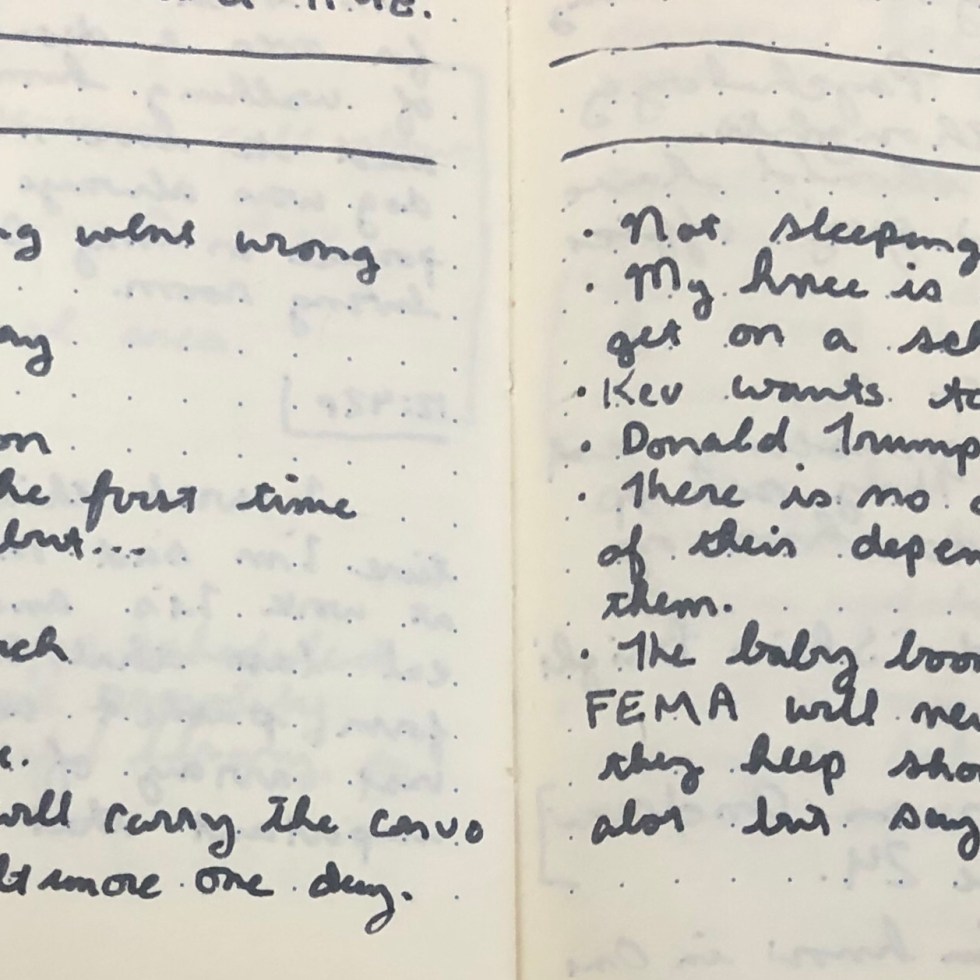 ng went wrong
ay
on
he first time
but...
ch
will carry the convo
more one day.
• Not sleeping
• My knee is
get on a
• Kev wants to
• Donald Trump
• There is no
of their depen
them.
• The baby boo
FEMA will
they keep sho
alot but say